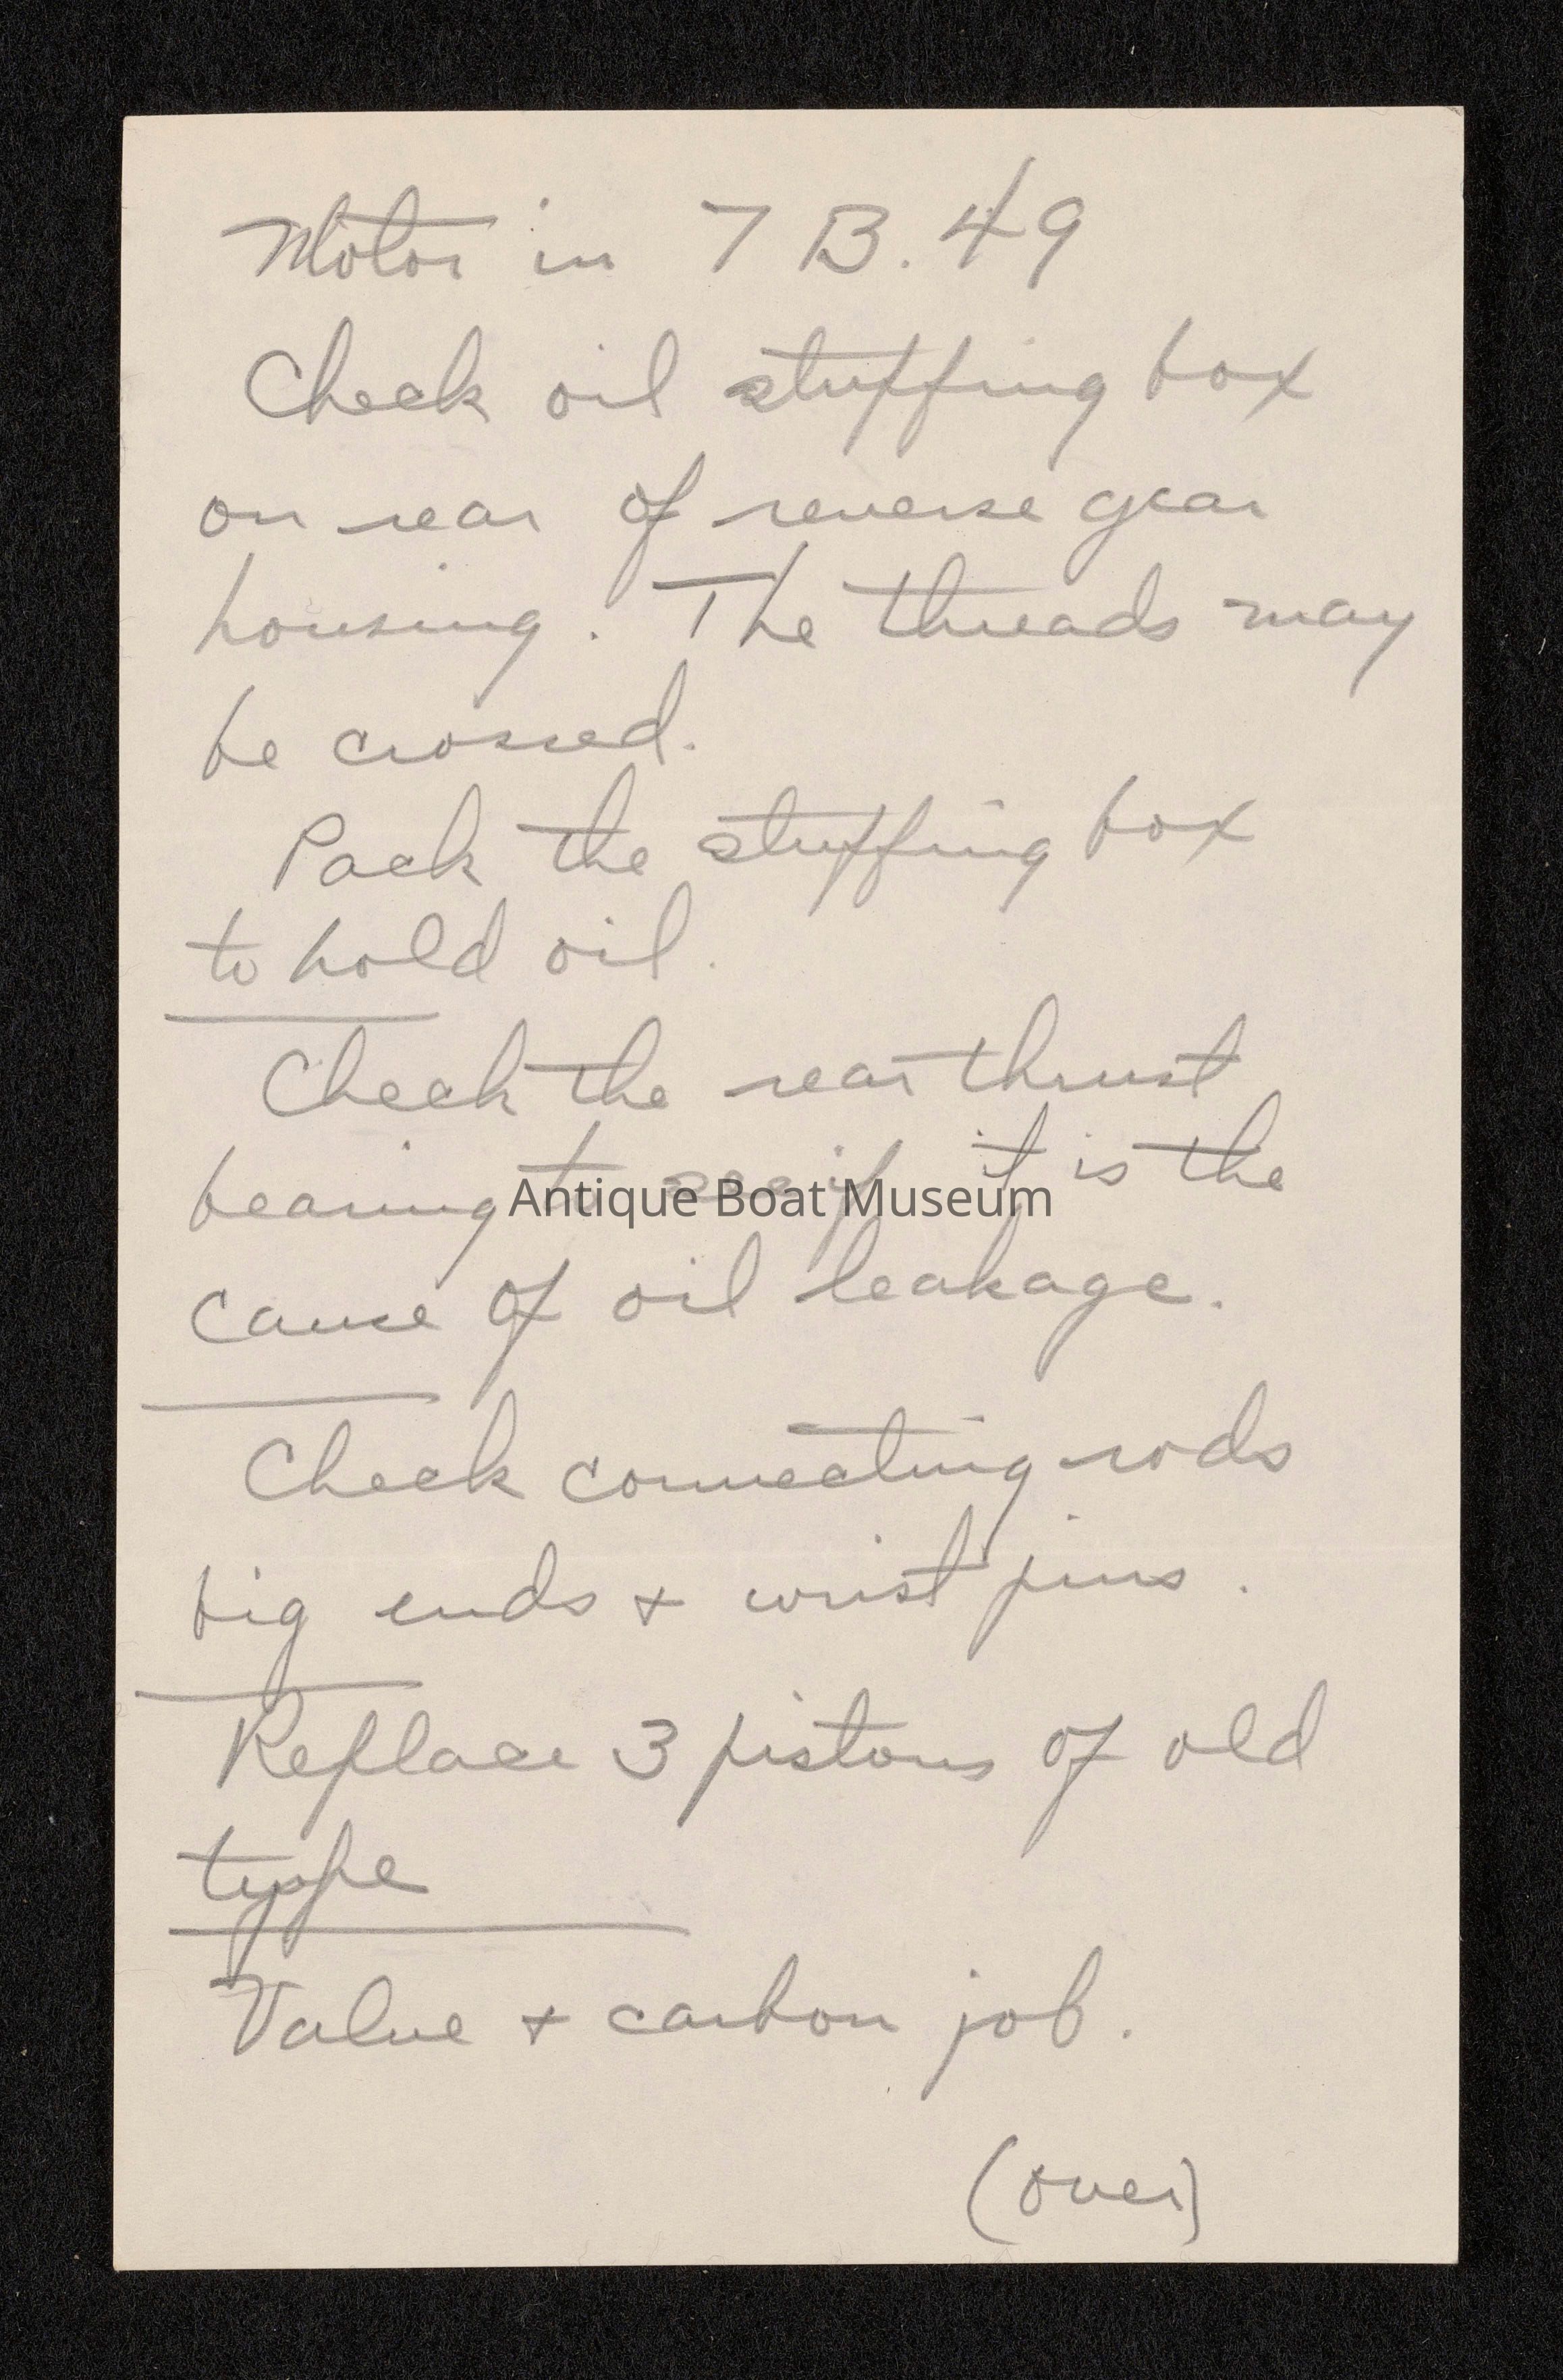 Motor in 7 B. 49
Check oil stuffing box
on rear of reverse gear
housing. The threads may
be crossed.
Pack the stuffing box
to hold oil.
Check the rear thrust
bearing to see if it is the
Antique Boat Museum
cause of oil leakage.
Check connecting rods
big ends + wrist pins.
Replace 3 pistons of old
type
Valve + carbon job.
(over)